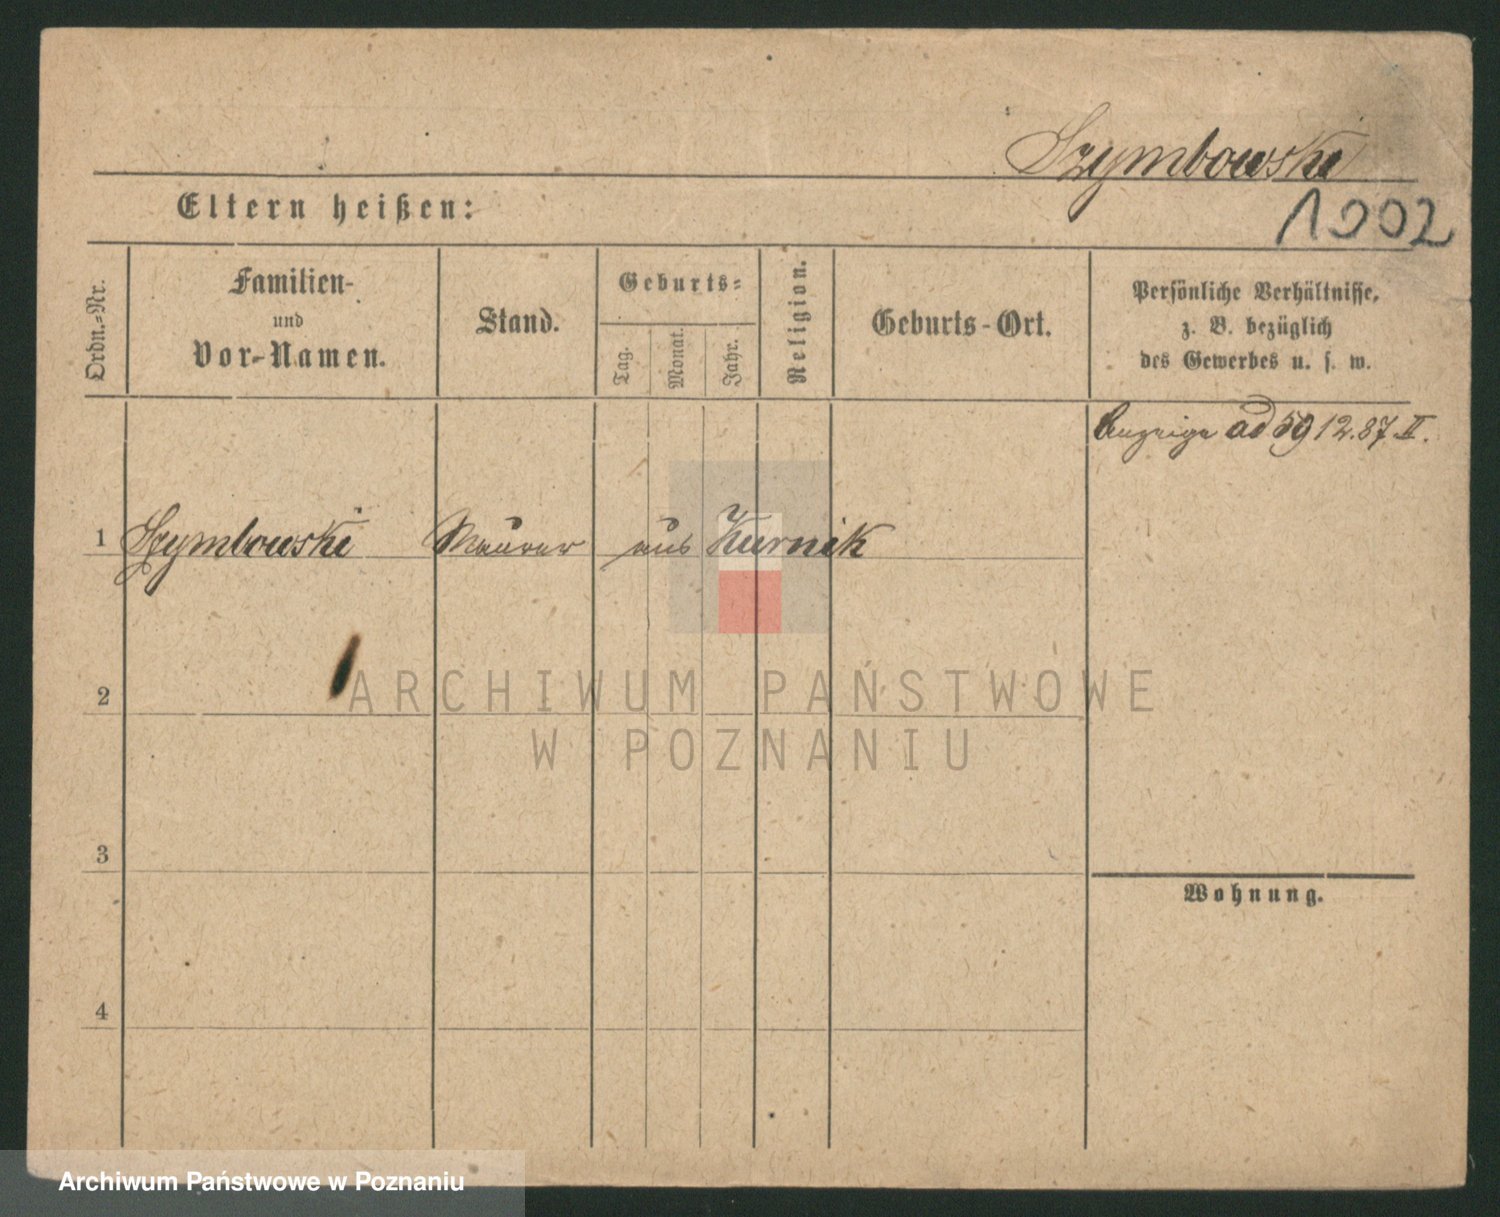 Szymbowski
Eltern heißen:
1002
Ordn.-Nr.
Familien-
und
Vor-Namen.
Stand.
Geburts-
Tag.
Monat.
Jahr.
Religion.
Geburts-Ort.
Persönliche Verhältnisse,
z. B. bezüglich
des Gewerbes u. s. w.
Anzeige ad 59 12.87 II.
1 Szymbowski Maurer aus Kurnik
2
ARCHIWUM PAŃSTWOWE
W POZNANIU
3
Wohnung.
4
Archiwum Państwowe w Poznaniu